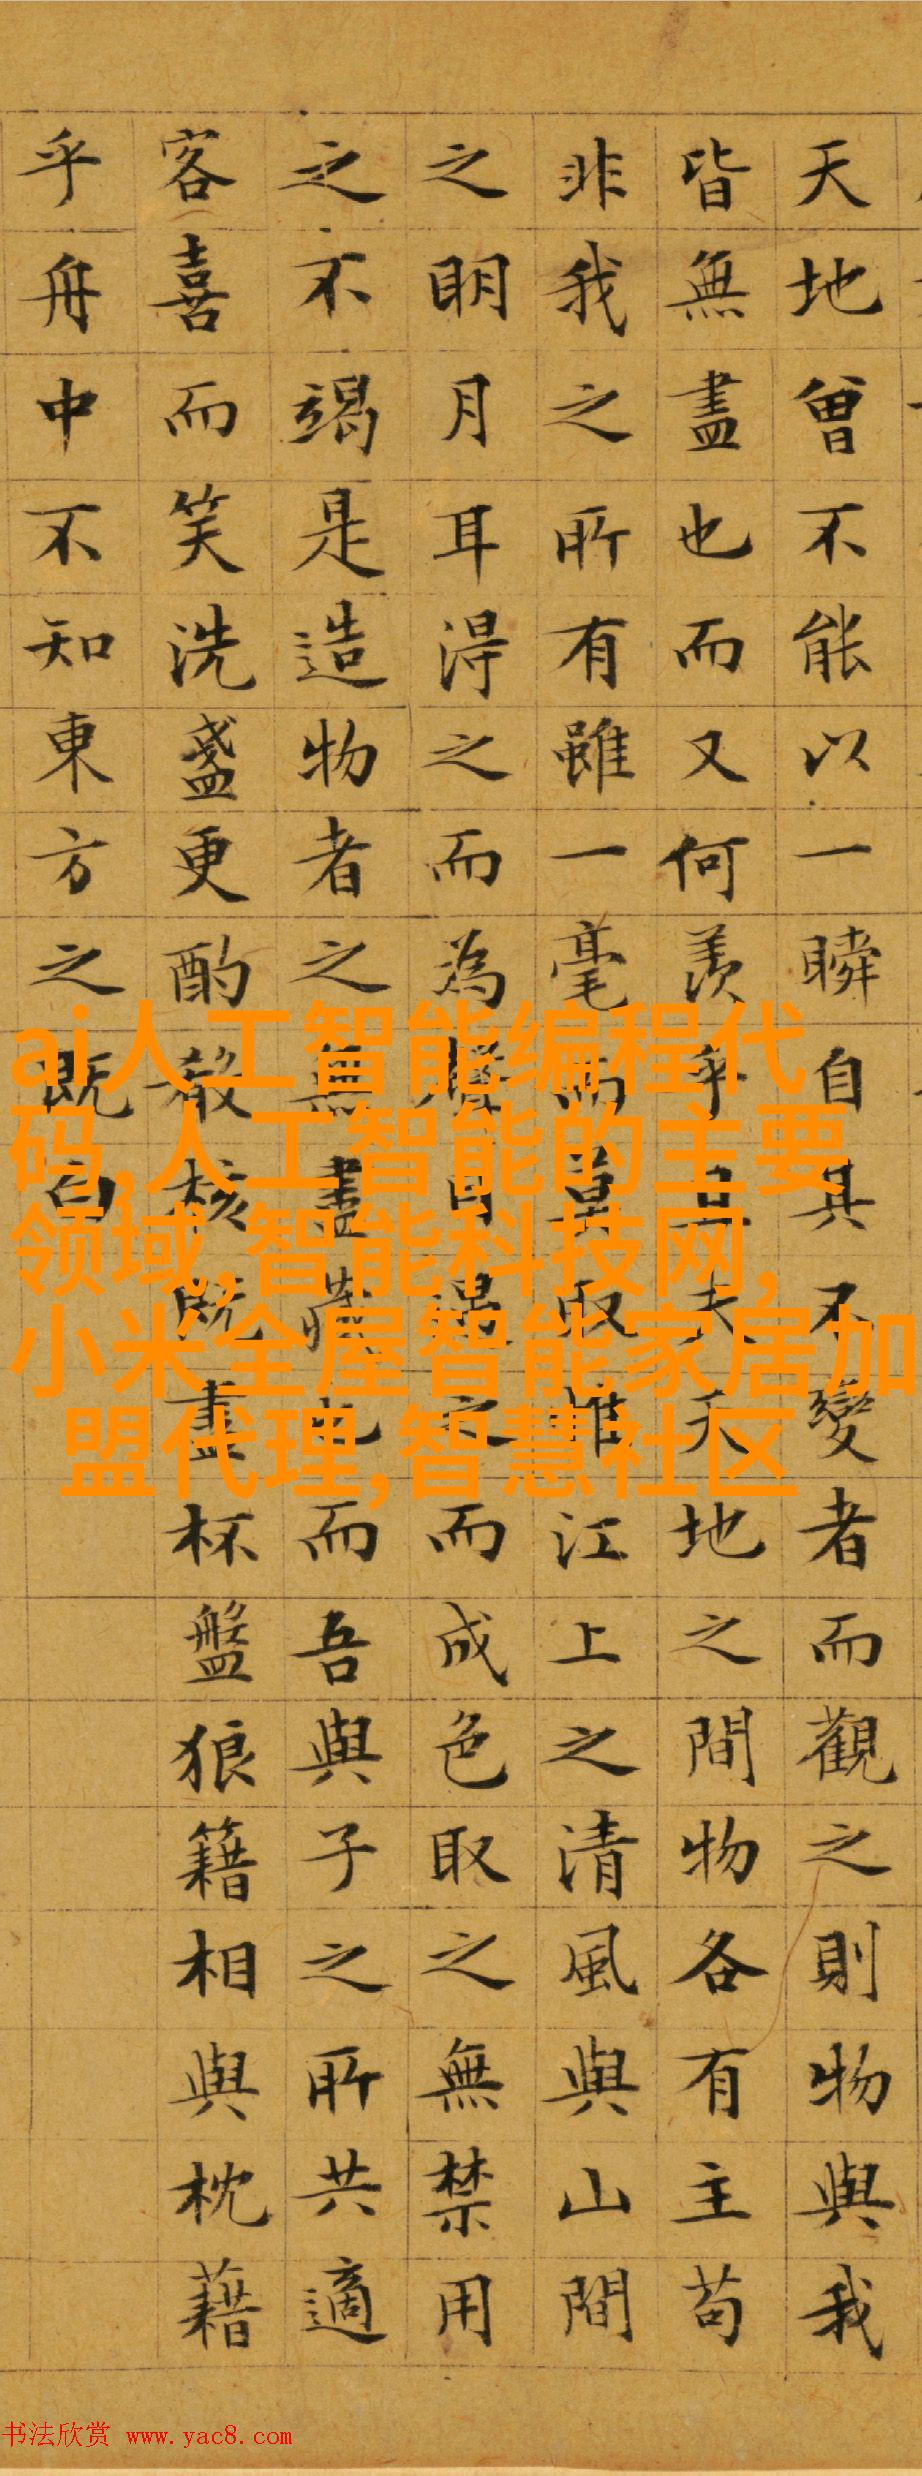 天地曾不能以一瞬自其不變者而觀之則物與我
皆無盡也而又何羨乎且夫天地之間物各有主苟
非我之所有雖一毫而莫取惟江上之清風與山間
之眀月耳得之而為聲目遇之而成色取之無禁用
之不竭是造物者之無盡藏也而吾與子之所共適
客喜而笑洗盞更酌殽核既盡杯盤狼籍相與枕藉
乎舟中不知東方之既白
ai人工智能编程代
码,人工智能的主要
领域,智能科技网,
小米全屋智能家居加
盟代理,智慧社区
书法欣赏 www.yac8.com